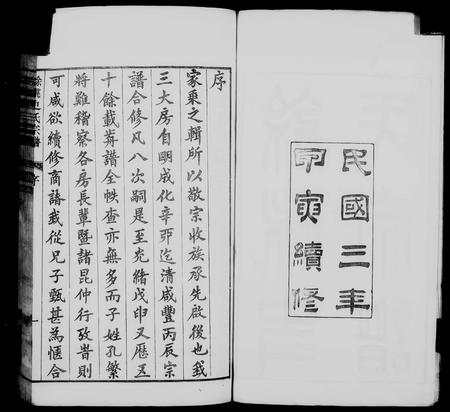 民國三年
甲寅續修
序
家乘之輯所以敬宗收族承先啟後也我
三大房自明成化辛卯迄清咸豐丙辰宗
譜合修凡八次嗣是至光緒戊申又歷五
十餘載舊譜全帙查亦無多而子姓孔繁
將難稽察各房長輩暨諸昆仲行攷昔則
可感欲續修商諸我從兄子甄甚為愜合
氏宗譜
序
一